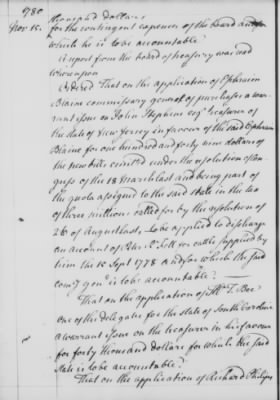 1780
Nov 15.
thousand dollars
for the contingent expences of the board and for
which he is to be accountable
A report from the board of treasury was read
Whereupon
Ordered That on the application of Ephraim
Blaine commissary general of purchases a war
rant issue on John Stephens esqr treasurer of
the state of New Jersey in favour of the said Ephraim
Blaine for one hundred and forty nine dollars of
the new bills emitted under the resolution of con
gress of the 18 March last and being part of
the quota assigned to the said state in the tax
of three millions called for by the resolution of
26 of August last, to be applied to discharge
an account of for cattle supplied by
him the 15 Sept 1778 and for which the said
comy genl is to be accountable:
That on the application of Mr T. Bee
one of the delegates for the state of South Carolina
a warrant issue on the treasurer in his favour
for forty thousand dollars for which the said
state is to be accountable:
That on the application of Richard Philips